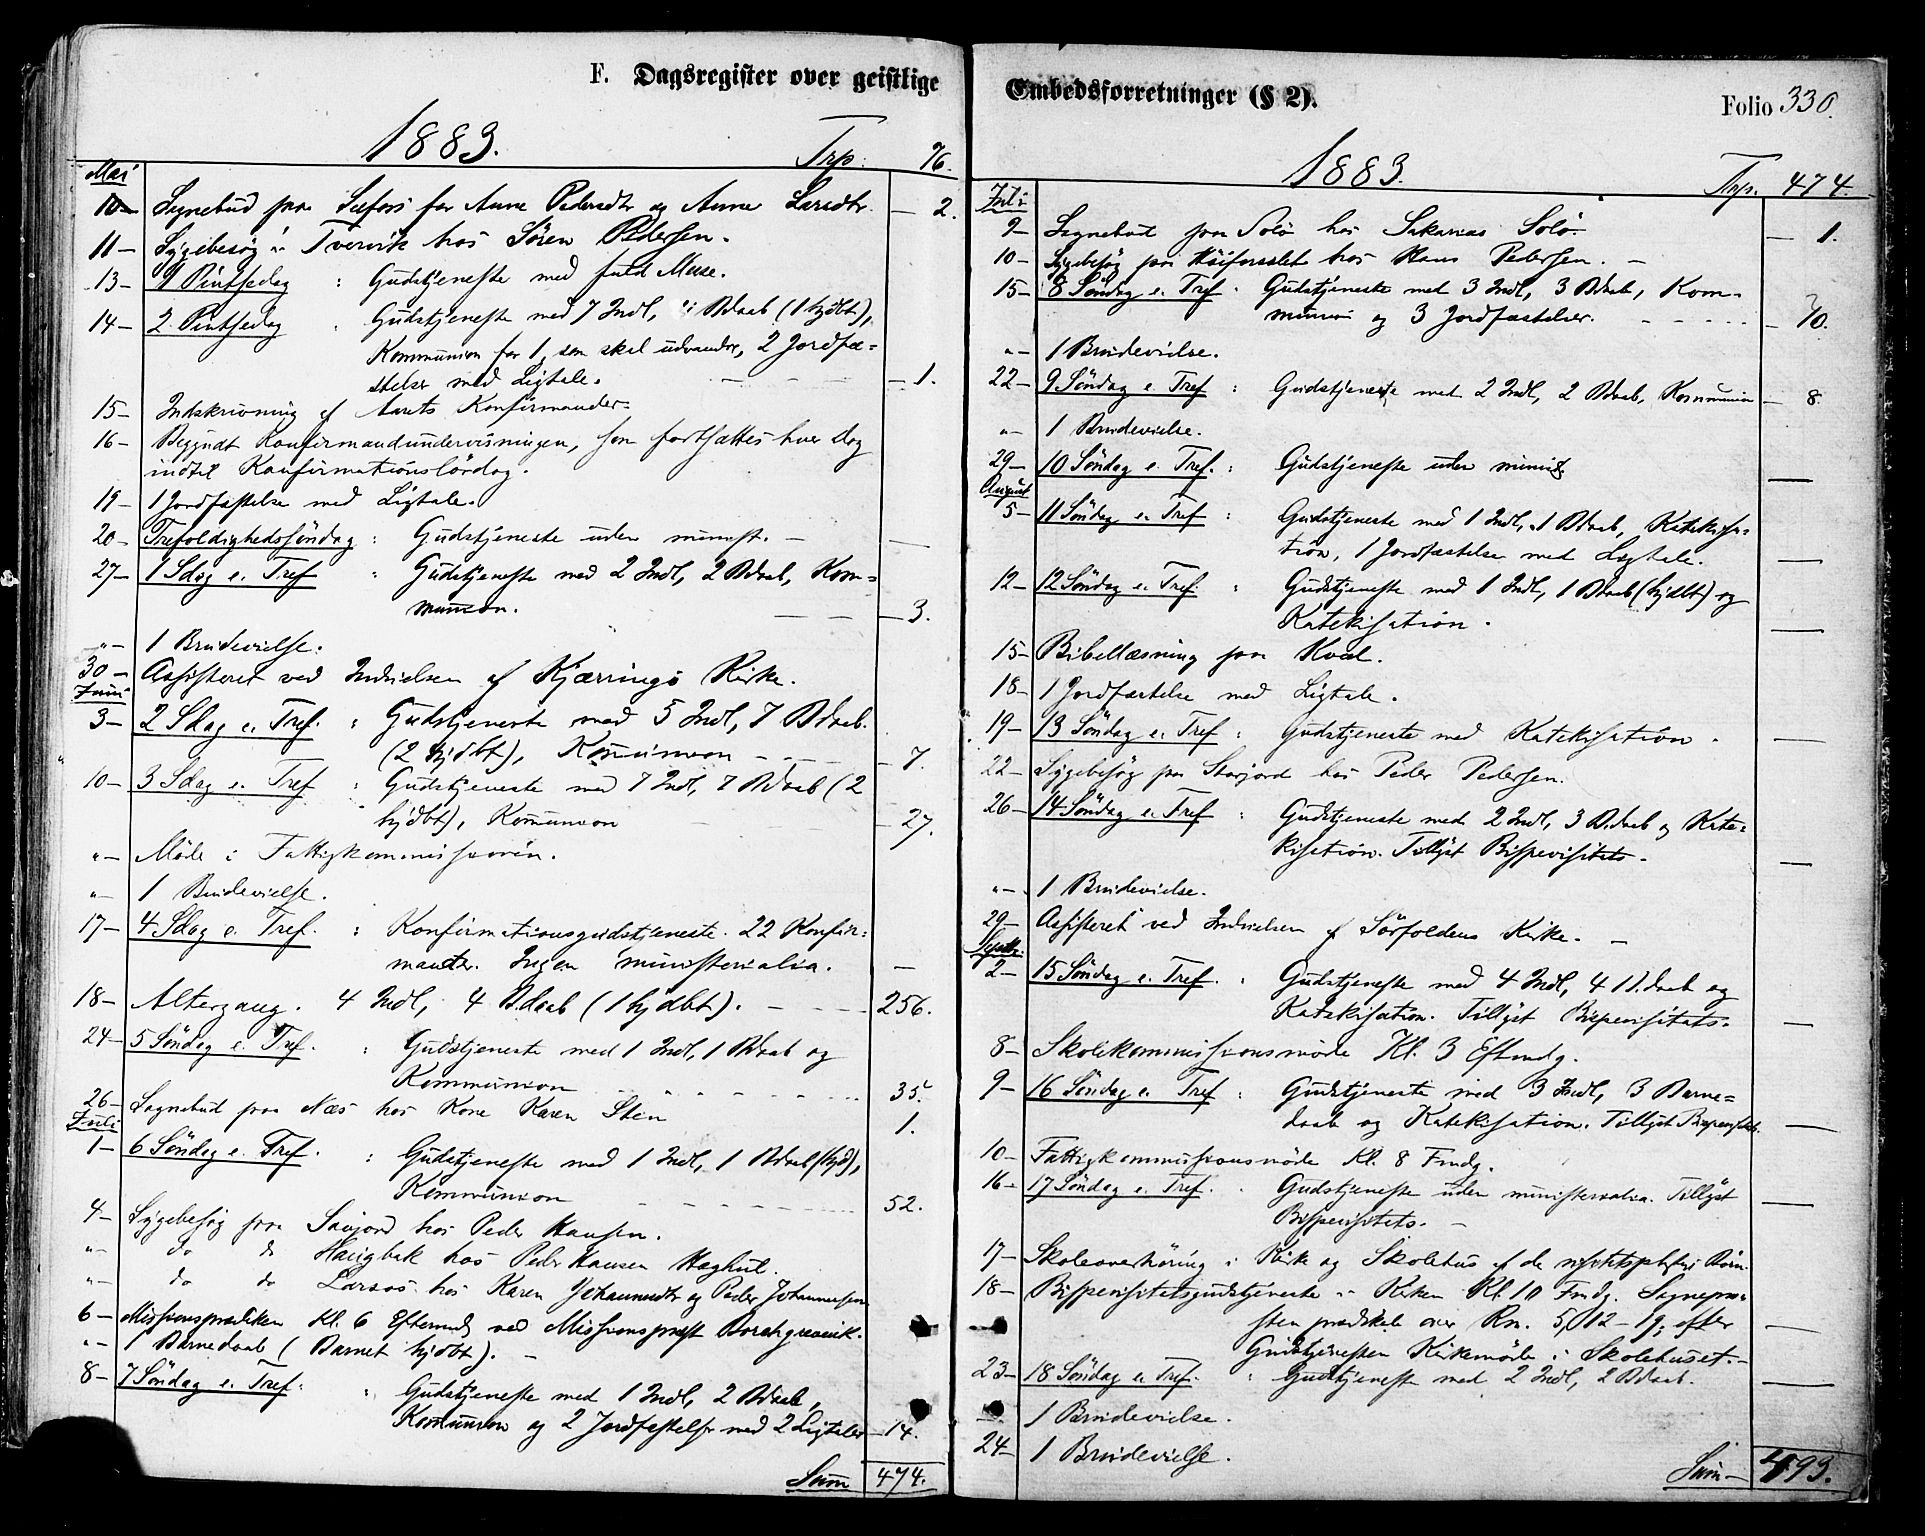 F. Dagsregister over geistlige
1883. Trp: 76.
Mai
10– Sognebud paa Seefors for Anne Pedersdtr og Anne Larsdtr – 2.
11– Sygebesøg i Tvervik hos Sören Pedersen.
13– 1 Pintsedag : Gudstjeneste med fuld Messe.
14– 2 Pintsedag : Gudstjeneste med 7 Indl, Bdaab (1 hjdbt),
Kommunion for 1, som skal udvandre, 2 Jordfæ=
stelser med Ligtale. – 1.
15– Indskrivning af Aarets Konfirmander.
16– Begyndt Konfirmandundervisningen, som fortsættes hver Dag
indtil Konfirmationslördag.
19– 1 Jordfæstelse med Ligtale.
20– Trefoldighedssöndag : Gudstjeneste uden minist. –
27– 1 Sdag e. Tref : Gudstjeneste med 2 Indl, 2 Bdaab, Kom=
munion. – 3.
"– 1 Brudevielse.
30– Assisteret ved Indvielsen af Kjærringö Kirke.
Juni
3– 2 Sdag e. Tref. : Gudstjeneste med 5 Indl, 7 Bdaab.
(2 hjdbt), Kommunion – 7.
10– 3 Sdag e. Tref : Gudstjeneste med 7 Indl, 7 Bdaab (2
hjdbt), Kommunion – 27.
"– Möde i Fattigkommissionen.
"– 1 Brudevielse.
17– 4 Sdag e. Tref. : Konfirmationsgudstjeneste. 22 Konfir=
mander. Ingen ministerialia. –
18– Altergang. 4 Indl, 4 Bdaab (1 hjdbt). – 256.
24– 5 Söndag e. Tref. : Gudstjeneste med 1 Indl, 1 Bdaab og
Kommunion 35.
26– Sognebud paa Næs hos Kone Karen Sten 1.
Juli
1– 6 Söndag e. Tref. : Gudstjeneste med 1 Indl, 1 Bdaab (hjd),
Kommunion 52.
4– Sygebesög paa Savjord hos Peder Hansen.
"– do do Haugbak hos Peder Hansen
"– do do Larsos hos Karen Johannesdtr og Peder Johannesen
6– Missionsprædiken Kl. 6 Eftermd ved Missionsprest Borchgrevink.
"– 1 Barnedaab (Barnet hjdbt). –
8– 7 Söndag e. Tref : Gudstjeneste med 1 Indl, 2 Bdaab,
Kommunion og 2 Jordfestelser med 2 Ligtaler – 14.
Sum 474.
Embedsforretninger (§ 2).
Folio 330.
1883. Trp. 474.
Juli
9– Sognebud paa Solö hos Sakarias Solö. – 1.
10– Sygebesög paa Höiforsslet hos Hans Pedersen. –
15– 8 Söndag e. Tref : Gudstjeneste med 3 Indl, 3 Bdaab, Kom=
munion og 3 Jordfæstelser. – 10.
"– 1 Brudevielse.
22– 9 Söndag e. Tref : Gudstjeneste med 2 Indl, 2 Bdaab, Kommunion – 8.
"– 1 Brudevielse.
29– 10 Söndag e. Tref. : Gudstjeneste uden minist –
August
5– 11 Söndag e. Tref : Gudstjeneste med 1 Indl, 1 Bdaab, Katekisa=
tion, 1 Jordfæstelse med Ligtale. –
12– 12 Söndag e. Tref. : Gudstjeneste med 1 Indl, 1 Bdaab (hjdbt) og
Katekisation. –
15– Bibellæsning paa Kval.
18– 1 Jordfæstelse med Ligtale.
19– 13 Söndag e. Tref : Gudstjeneste med Katekisation. –
22– Sygebesög paa Storjord hos Peder Pedersen.
26– 14 Söndag e. Tref : Gudstjeneste med 2 Indl, 3 Bdaab og Kate=
kisation. Tillyst Bispevisitats. –
"– 1 Brudevielse.
29– Assisteret ved Indvielsen af Sörfoldens Kirke. –
Septbr
2– 15 Söndag e. Tref. : Gudstjeneste med 4 Indl, 4 B.daab og
Katekisation. Tillyst Bispevisitats. –
8– Skolekommissionsmöde Kl. 3 Eftmdg.
9– 16 Söndag e. Tref : Gudstjeneste med 3 Indl, 3 Barne=
daab og Katekisation. Tillyst Bispevisitats. –
10– Fattigkommissionsmöde Kl. 8 Fmdg.
16– 17 Söndag e. Tref. : Gudstjeneste uden ministerialia. Tillyst
Bispevisitats. –
17– Skoleoverhöring i Kirke og Skolehus af de Börn
18– Bispevisitatsgudstjeneste i Kirken Kl. 10 Fmdg. Sognepræ=
sten prædikede over Rm. 5, 12–19; efter
Gudstjenesten Kirkemöde i Skolehuset. –
23– 18 Söndag e. Tref. : Gudstjeneste med 2 Indl, 2 Bdaab. –
"– 1 Brudevielse.
24– 1 Brudevielse.
Sum– 493.